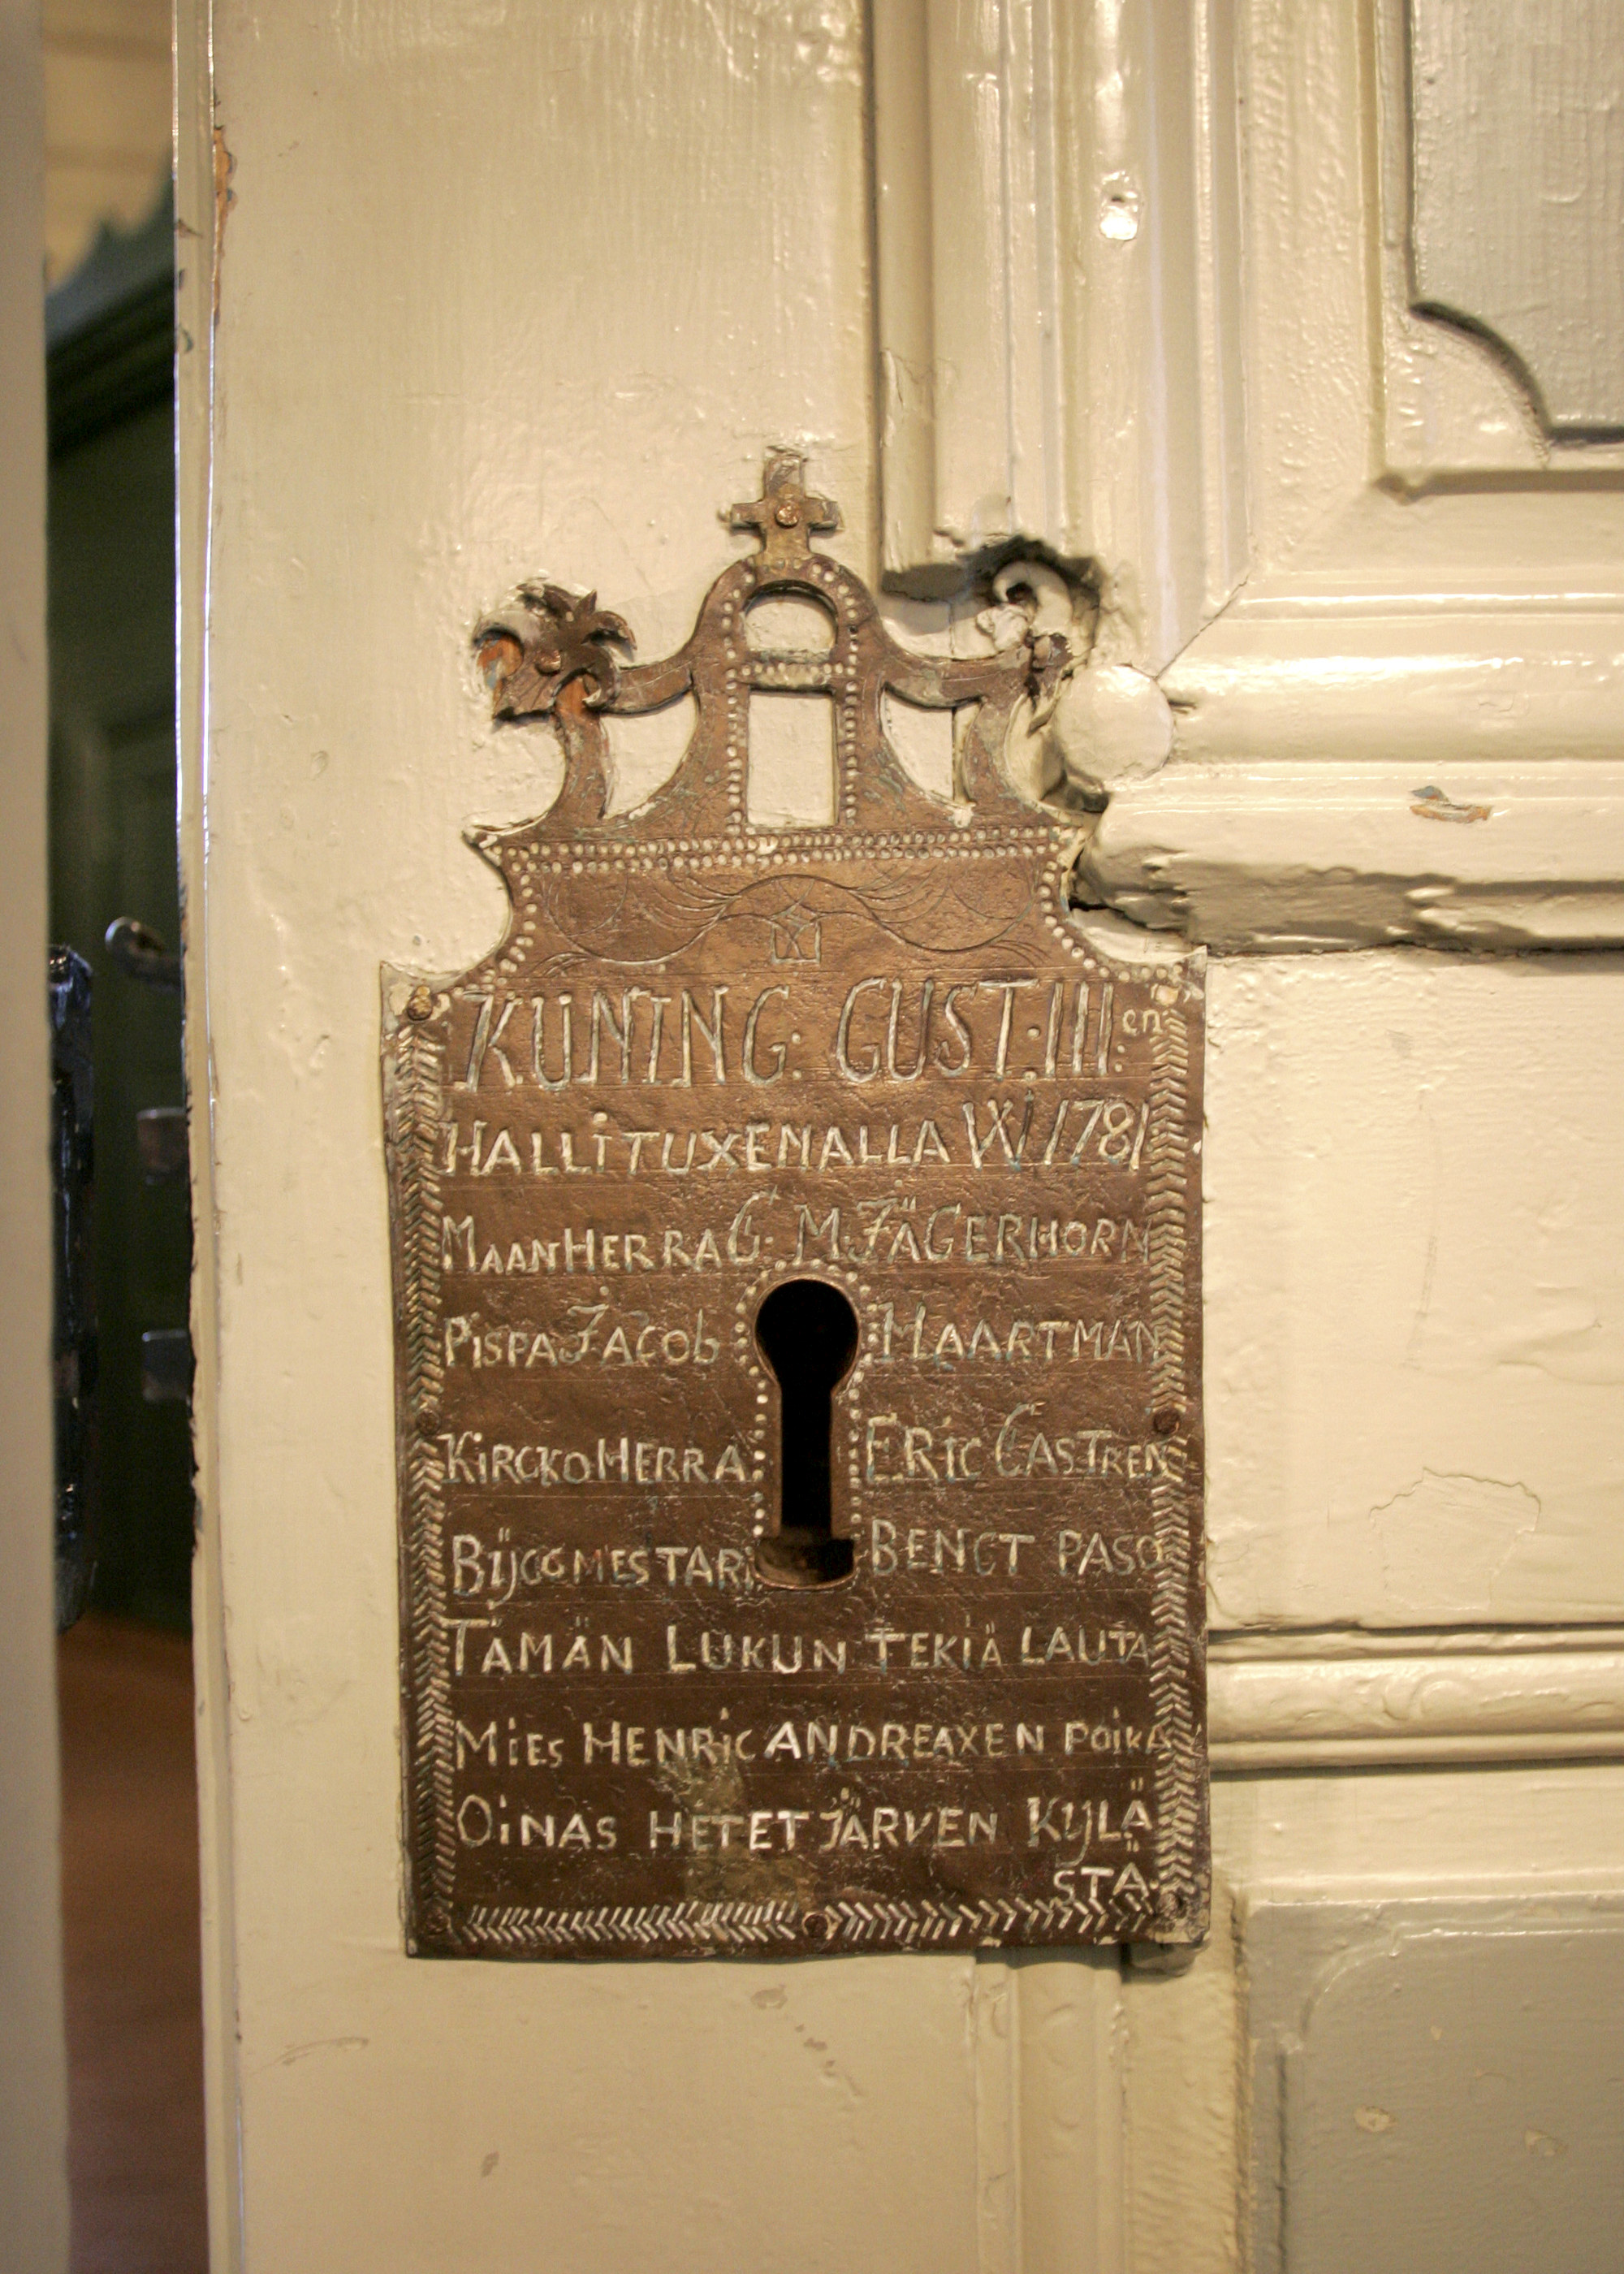 KUNING: GUST. III: en
HALLITUXENALLA W 1781
MAANHERRA G. M. JÄGERHORN
PISPA JACOB HAARTMAN
KIRCKOHERRA ERIC CASTREN
BIJGGMESTARI BENGT PASO
TÄMÄN LUKUN TEKIÄ LAUTA
MIES HENRIC ANDREAXEN POIKA
OINAS HETET JÄRVEN KYLÄ
STÄ.